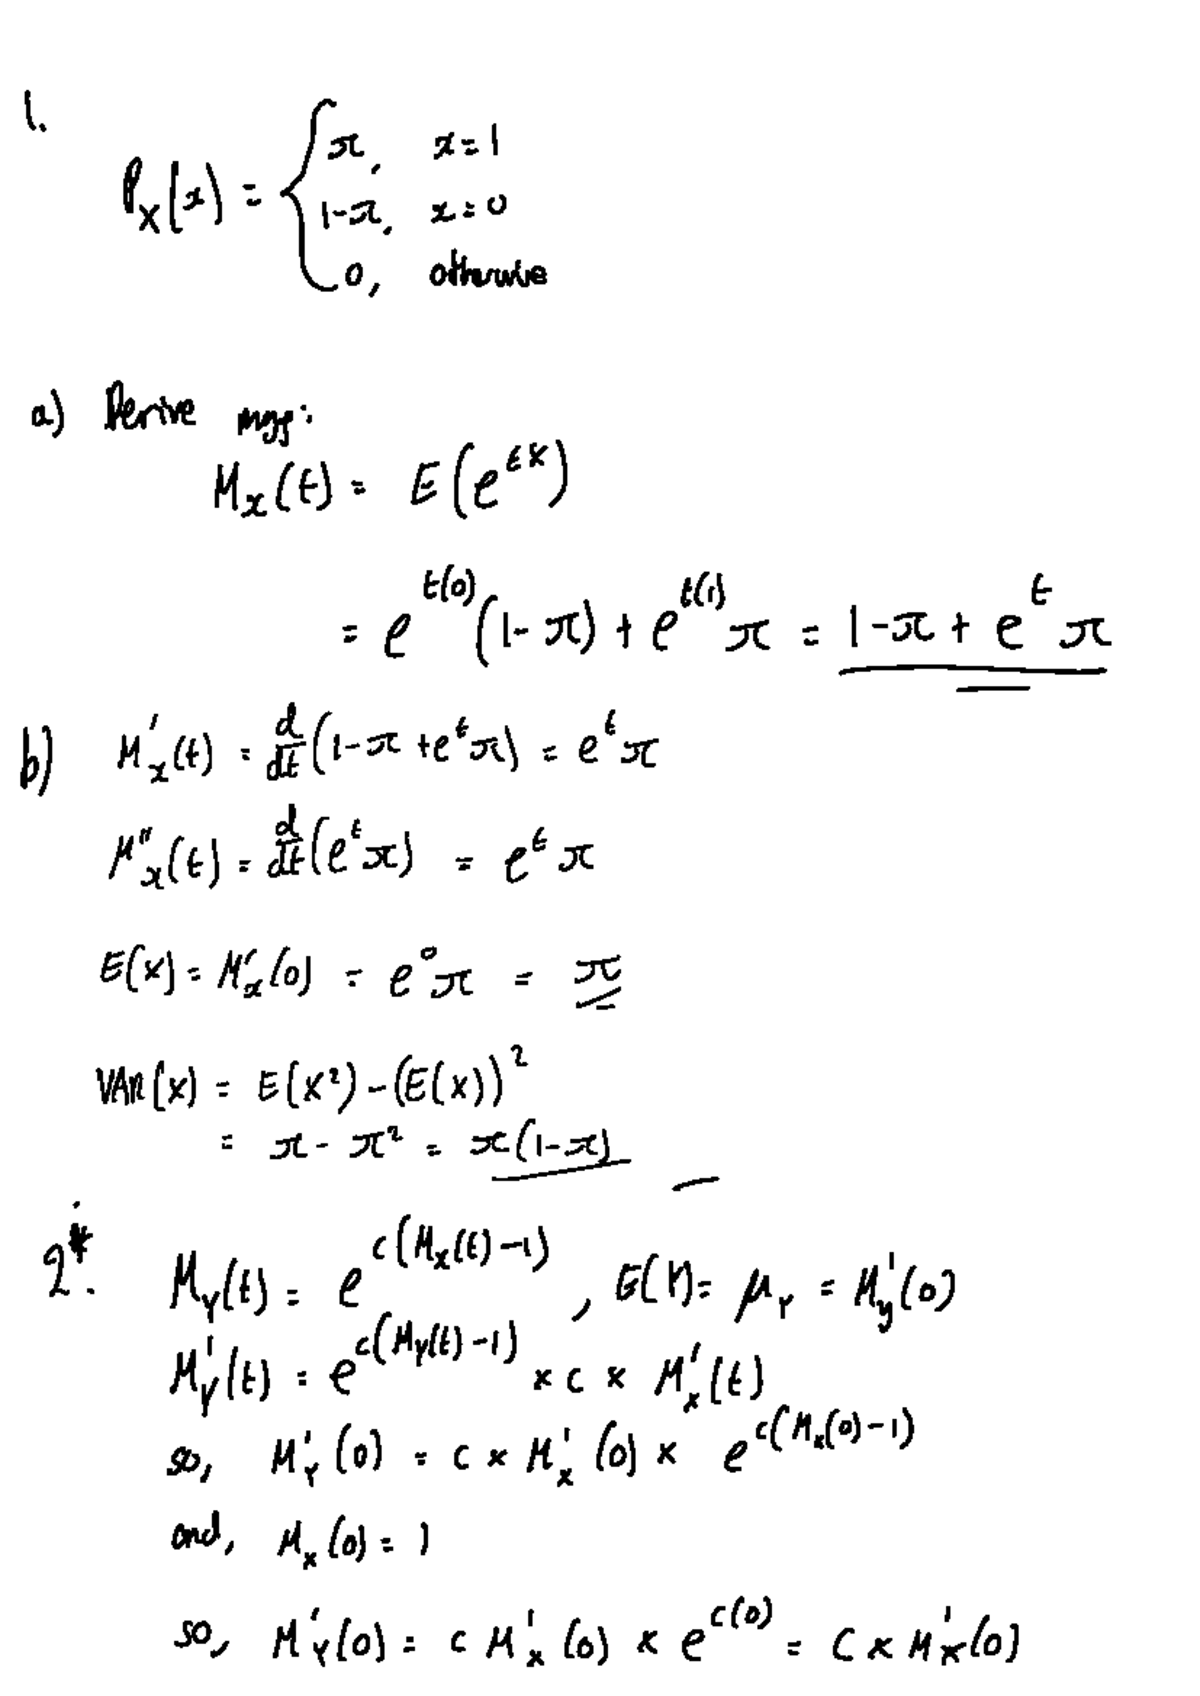 1.
P_X(x) = { π, x=1
1-π, x=0
0, otherwise
a) Derive mgf:
M_x(t) = E(e^{tX})
= e^{t(0)}(1-π) + e^{t(1)}π = 1-π + e^t π
b) M'_x(t) = d/dt(1-π+e^tπ) = e^tπ
M''_x(t) = d/dt(e^tπ) = e^t π
E(X) = M'_x(0) = e^0π = π
VAR(X) = E(X²)-(E(X))²
= π - π² = π(1-π)
2*. M_Y(t) = e^{c(M_x(t)-1)}, E(Y) = μ_Y = M'_y(0)
M'_Y(t) = e^{c(M_Y(t)-1)} × c × M'_x(t)
so, M'_Y(0) = c × M'_x(0) × e^{c(M_x(0)-1)}
and, M_x(0) = 1
so, M'_Y(0) = c M'_x(0) × e^{c(0)} = c × M'_X(0)